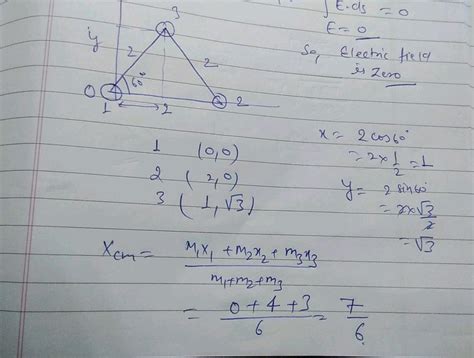 ∫E.ds = 0
E = 0
So, Electric field
is Zero
y
3
2
2
60°
0
1
2
2
x = 2cos60°
= 2×1/2 = 1
y = 2 sin60°
= 2×√3/2
= √3
1 (0,0)
2 (2,0)
3 (1,√3)
Xcm = m₁x₁ + m₂x₂ + m₃x₃ / m₁+m₂+m₃
= 0+4+3 / 6 = 7/6